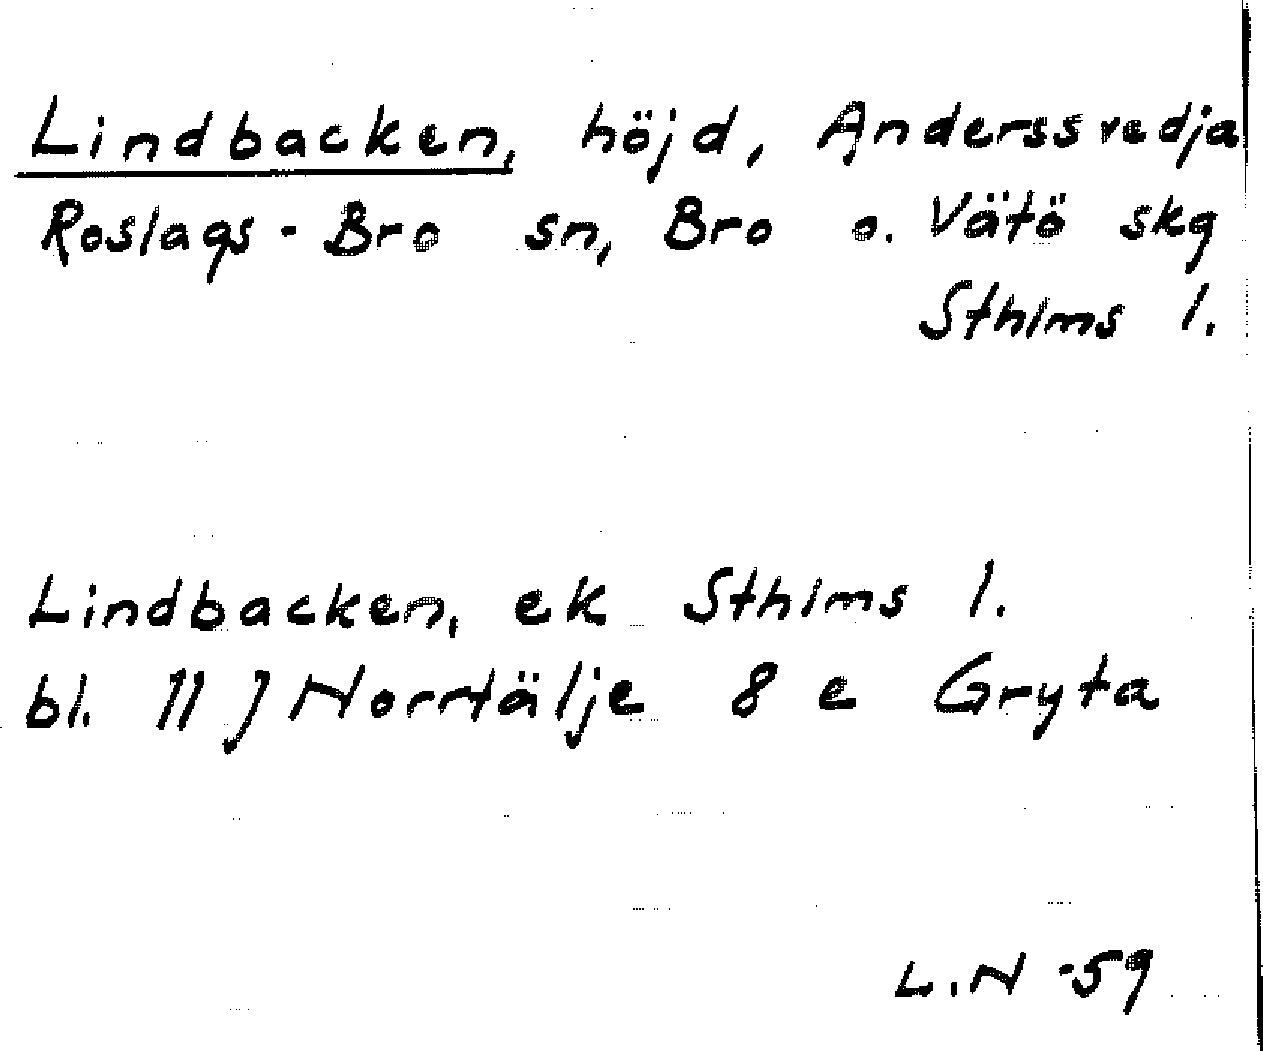 Lindbacken, höjd, Anderssvedja
Roslags-Bro sn, Bro o. Vätö skg
Sthlms l.
Lindbacken, ek Sthlms l.
bl. 11 J Norrtälje 8 e Gryta
L.N -59